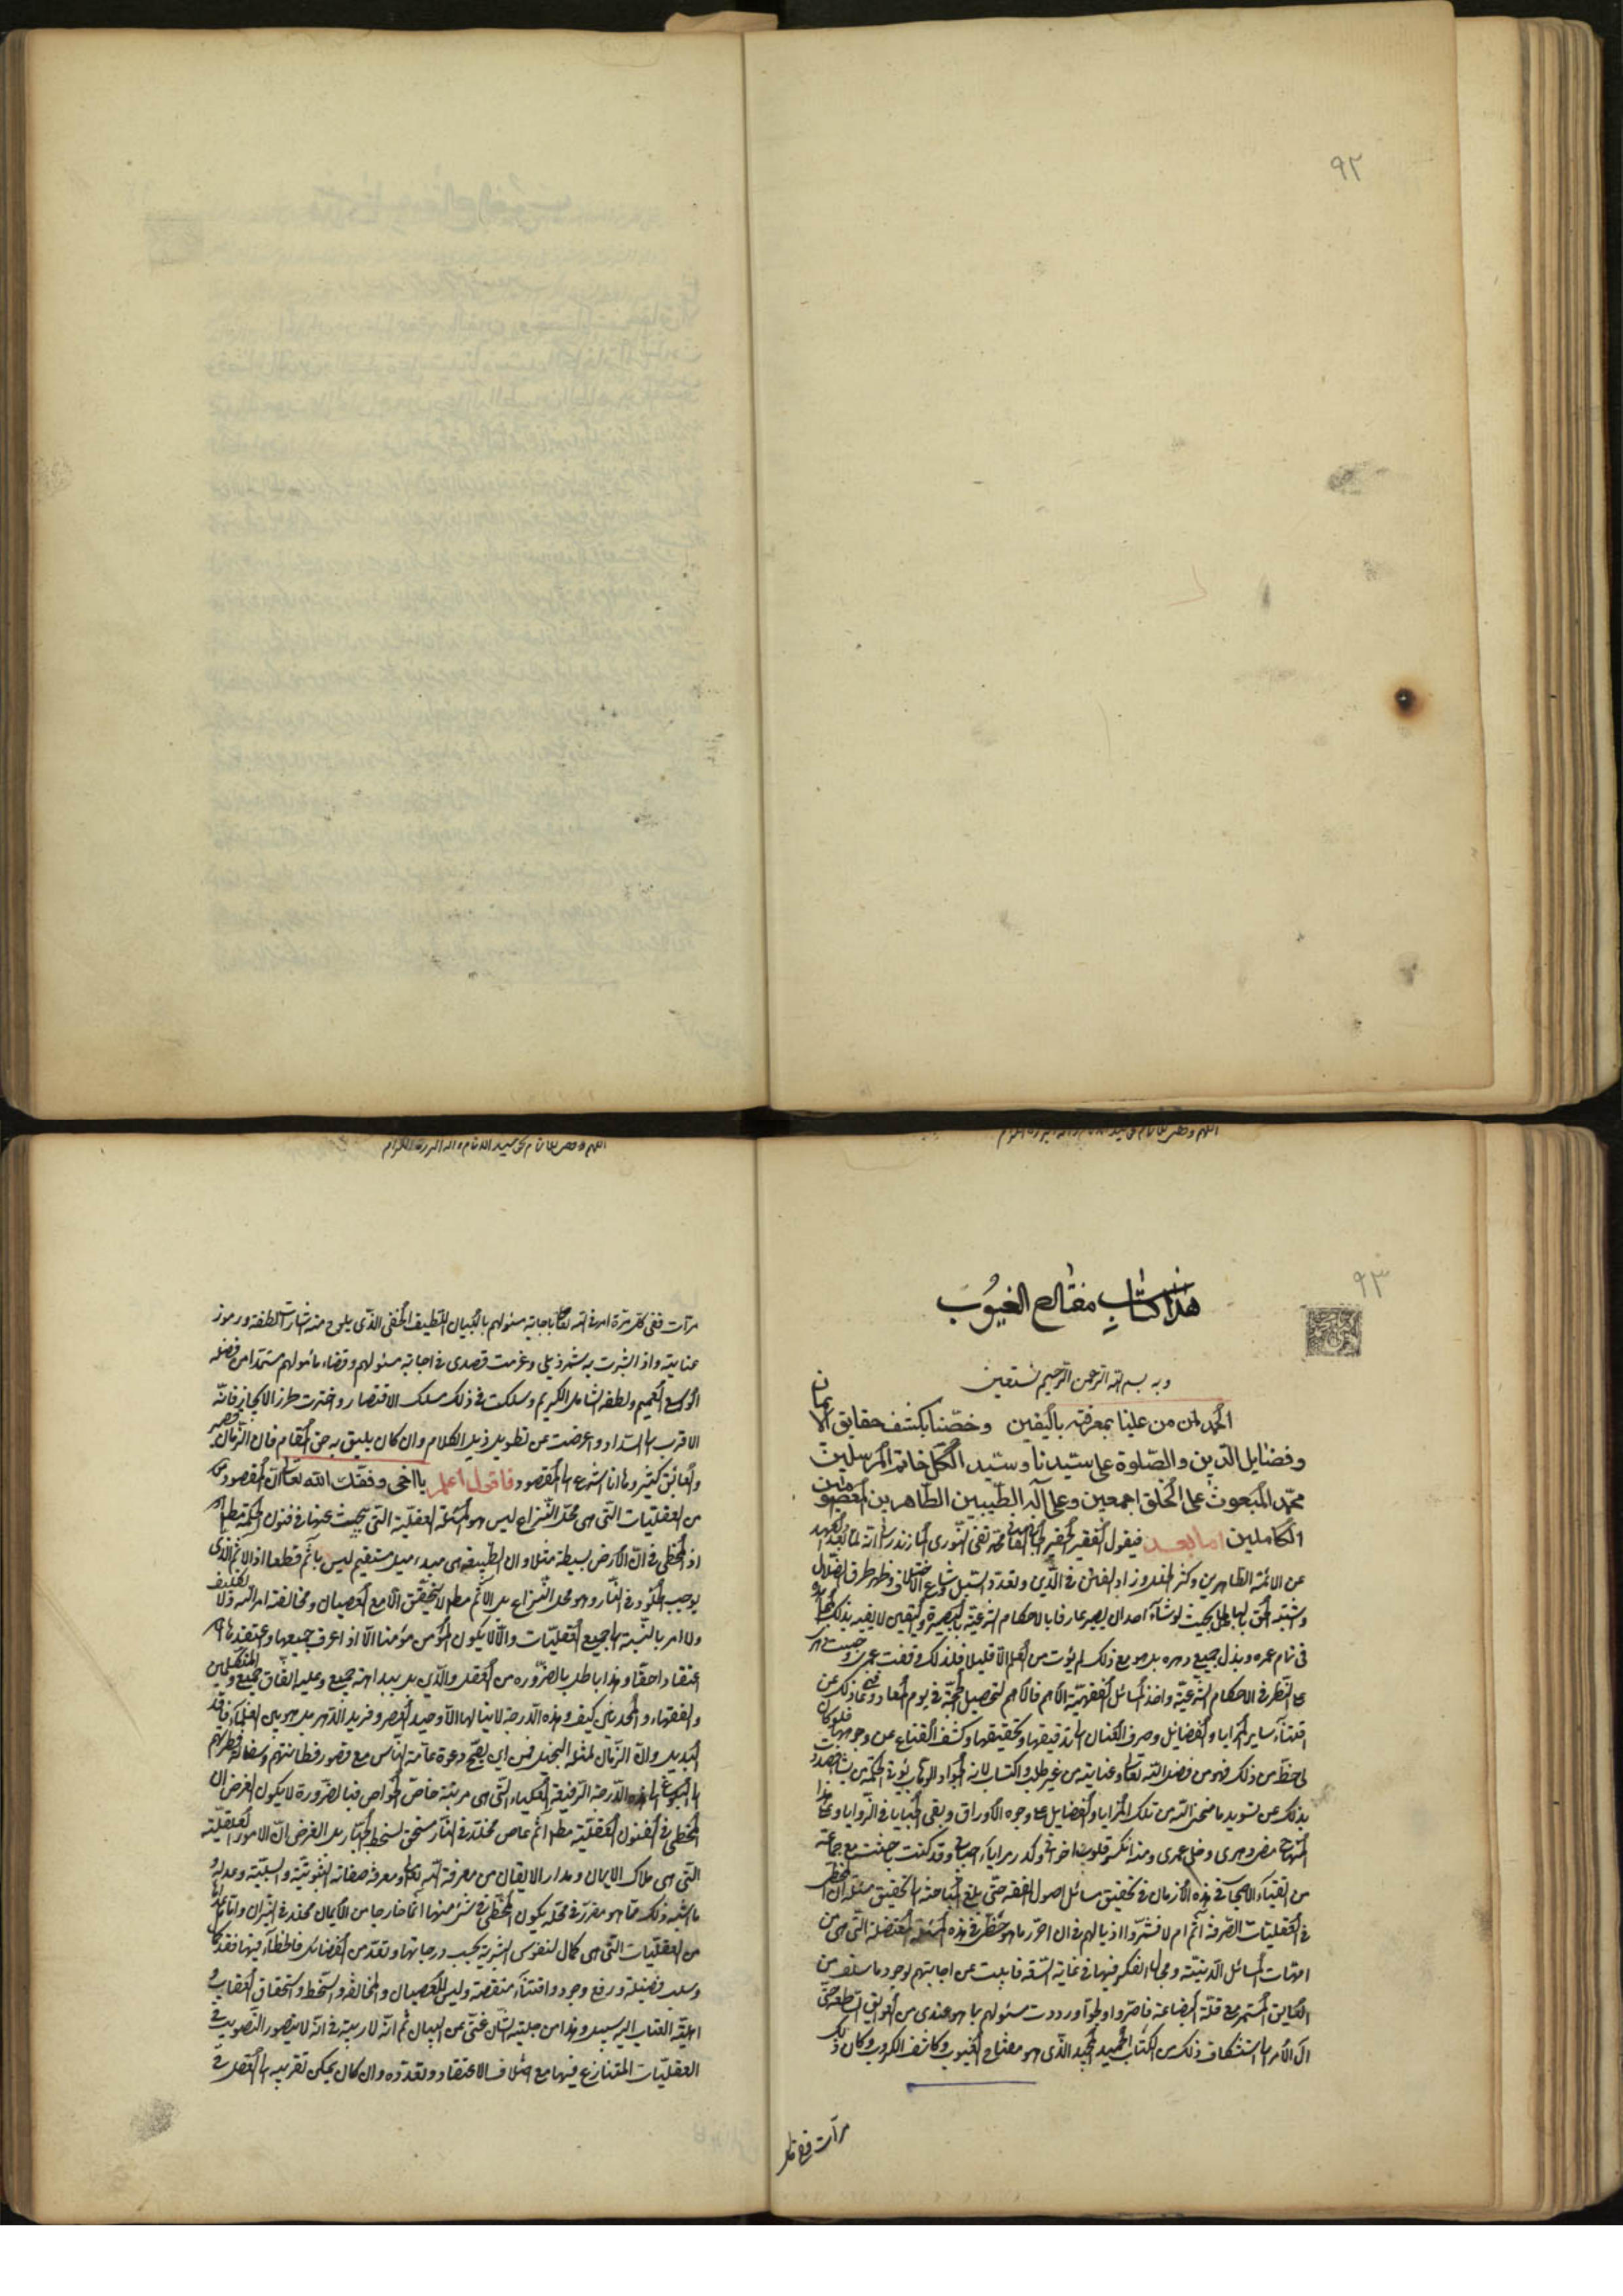 ٩٢
٩٣
هذا كتاب مفتاح الغيوب
وبه بسم الله الرحمن الرحيم نستعين
الحمد لمن من علينا بمعرفته باليقين وخصّنا بكشف حقايق الايمان
وفضايل الدين والصّلوة على سيّدنا وسيّد الكلّ خاتم المرسلين
محمّد المبعوث على الخلق اجمعين وعلى آله الطّيبين الطّاهرين المعصومين
الكاملين اما بعد فيقول الفقير الحقير محمّد تقى النّورى المازندرانى انّه لما بعد العهد
عن الائمّة الطاهرين وكثر وزاد الفاسق فى الدّين وتعدّد السّبل وشاع الاختلاف وظهر طرق الضّلال
واشتبه الحق بالباطل بحيث لو شآء احد ان يصير عارفا بالاحكام الشرعيّة بالبصيرة واليقين لا يفيد بذلك
فى تمام عمره وبذل جميع دهره بل هو مع ذلك لم يؤت من العلم الا قليلا فلذلك وقفت عمرى وحبست
على النّظر فى الاحكام الشّرعيّة واخذ المسائل الفقهيّة الاهم فالاهم لتحصيل الحجّة فى يوم المعاد
اقتنآء ساير المزايا والفضايل وصرف العنان الى تدقيقها وتحقيقها وكشف القناع عن وجوهها فلو كان
لى حظّ من ذلك فهو من فضل الله تعالى وعنايته من غير طلب واكتساب لانه الجواد الوهّاب يؤتى الحكمة من يشاء
بذلك عن تسويد ما منحنى الله من تلك المزايا والفضايل على وجوه الاوراق وبقى الخبايا فى الزّوايا وعلى هذا
المنهاج مضى دهرى وخلى عمرى وقد كنت باحثت مع جماعة
من اتقياء الاصحاب فى هذه الازمان فى تحقيق مسائل اصول الفقه حتّى بلغ المباحثة الى تحقيق مسئلة ان المخطى
فى العقليّات الصّرفة آثم ام لا فى ان احرّر ما هو حظّى فى هذه المسئلة المعضلة التّى هى من
امّهات المسائل الدّينيّة ومجال الفكر فيها فى غاية السّعة فابيت عن اجابتهم لوجود ما سلف من
العايق المستمر مع قلّة البضاعة فاصرّوا ورددت سئولهم بما هو عندى من العوايق حتّى
آل الأمر الى استكشاف ذلك من الكتاب الحميد المجيد الّذى هو مفتاح الغيوب وكاشف الكروب وكان ذلك
مرآت ففى كل
مرآت ففى كلّ مرّة امرنى الله تعالى باجابة مسئولهم بالبيان اللّطيف الخفى الّذى يلوح منه بشارات لطفه ورموز
عنايته واذا بشّرت به شمّر ذيلى وعزمت قصدى فى اجابة مسئولهم وقضاء مأمولهم مستمدا من فضله
الواسع العميم ولطفه الشامل الكريم وسلكت فى ذلك مسلك الاقتصار واخترت طرز الايجاز فانّه
الاقرب الى السّداد واعرضت عن تطويل ذيل الكلام وان كان يليق به حق المقام فان الزّمان قصير
والعائق كثير وها انا اشرع الى المقصود فاقول اعلم يا اخى وفقك الله تعالى انّ المقصود من
من العقليّات التّى هى محلّ النّزاع ليس هو المسئلة العقليّة التّى يبحث عنها فى فنون الحكمة مطلقا
اذ المخطى فى انّ الارض بسيطة مثلا وان الطّبيعة هى مبدء ميل مستقيم ليس بآثم قطعا اذ الاثم الذى
يوجب الخلود فى النّار وهو محلّ النّزاع بل الاثم مطلقا لا يتحقّق الا مع العصيان ومخالفة امر الله ولا تكليف
ولا امر بالنّسبة الى جميع العقليّات والّا لا يكون المؤمن مؤمنا الّا اذا عرف جميعها واعتقدها
اعتقادا حقّا وهذا باطل بالضّرورة من العقل والدّين بل ببداهة جميع وعليه اتّفاق جميع المتكلّمين
والفقهاء والمحدثين كيف وهذه الدّرجة لا ينالها الّا وحيد العصر وفريد الدّهر بل هو بين العلماء
البديل وانّ الزّمان لمثله لبخيل فمن اي يصحّ دعوة عامّة النّاس مع قصور فطانتهم وسفالة فطرتهم
الى البلوغ الى هذه الدّرجة الرّفيعة العلياء التّى هى مرتبة خاصّ الخواص فبالضّرورة لا يكون الغرض ان
المخطى فى الفنون العقليّة مطلقا آثم عاص مخلّد فى النّار مستحق لسخط الجبّار بل الغرض انّ الامور العقليّة
التّى هى ملاك الايمان ومدار الايقان من معرفة الله تعالى ومعرفة صفاته الثبوتيّة والسلبيّة وعدله
ما اشبه ذلك ممّا هو مقرّر فى محلّه يكون المخطى فى شئ منها آثما خارجا من الايمان مخلّد فى النّيران وامّا
من العقليّات التّى هى كمال لنفوس البشريّة بحسب درجاتها وتعدّ من الفضائل فالخطاء فيها فقد كمال
وسلب فضيلة ورفع وجود واقتنآء منقصة وليس للعصيان والمخالفة والسّخط واستحقاق العقاب
اهليّة العتاب اليه سبيل وهذا من جليّة الشّان غنىّ عن البيان ثم انّه لا ريبة فى انّه لا يتصوّر التّصويب فى
العقليّات المتنازع فيها مع اختلاف الاعتقاد وتعدّده وان كان يمكن تقريبه الى العقل فى